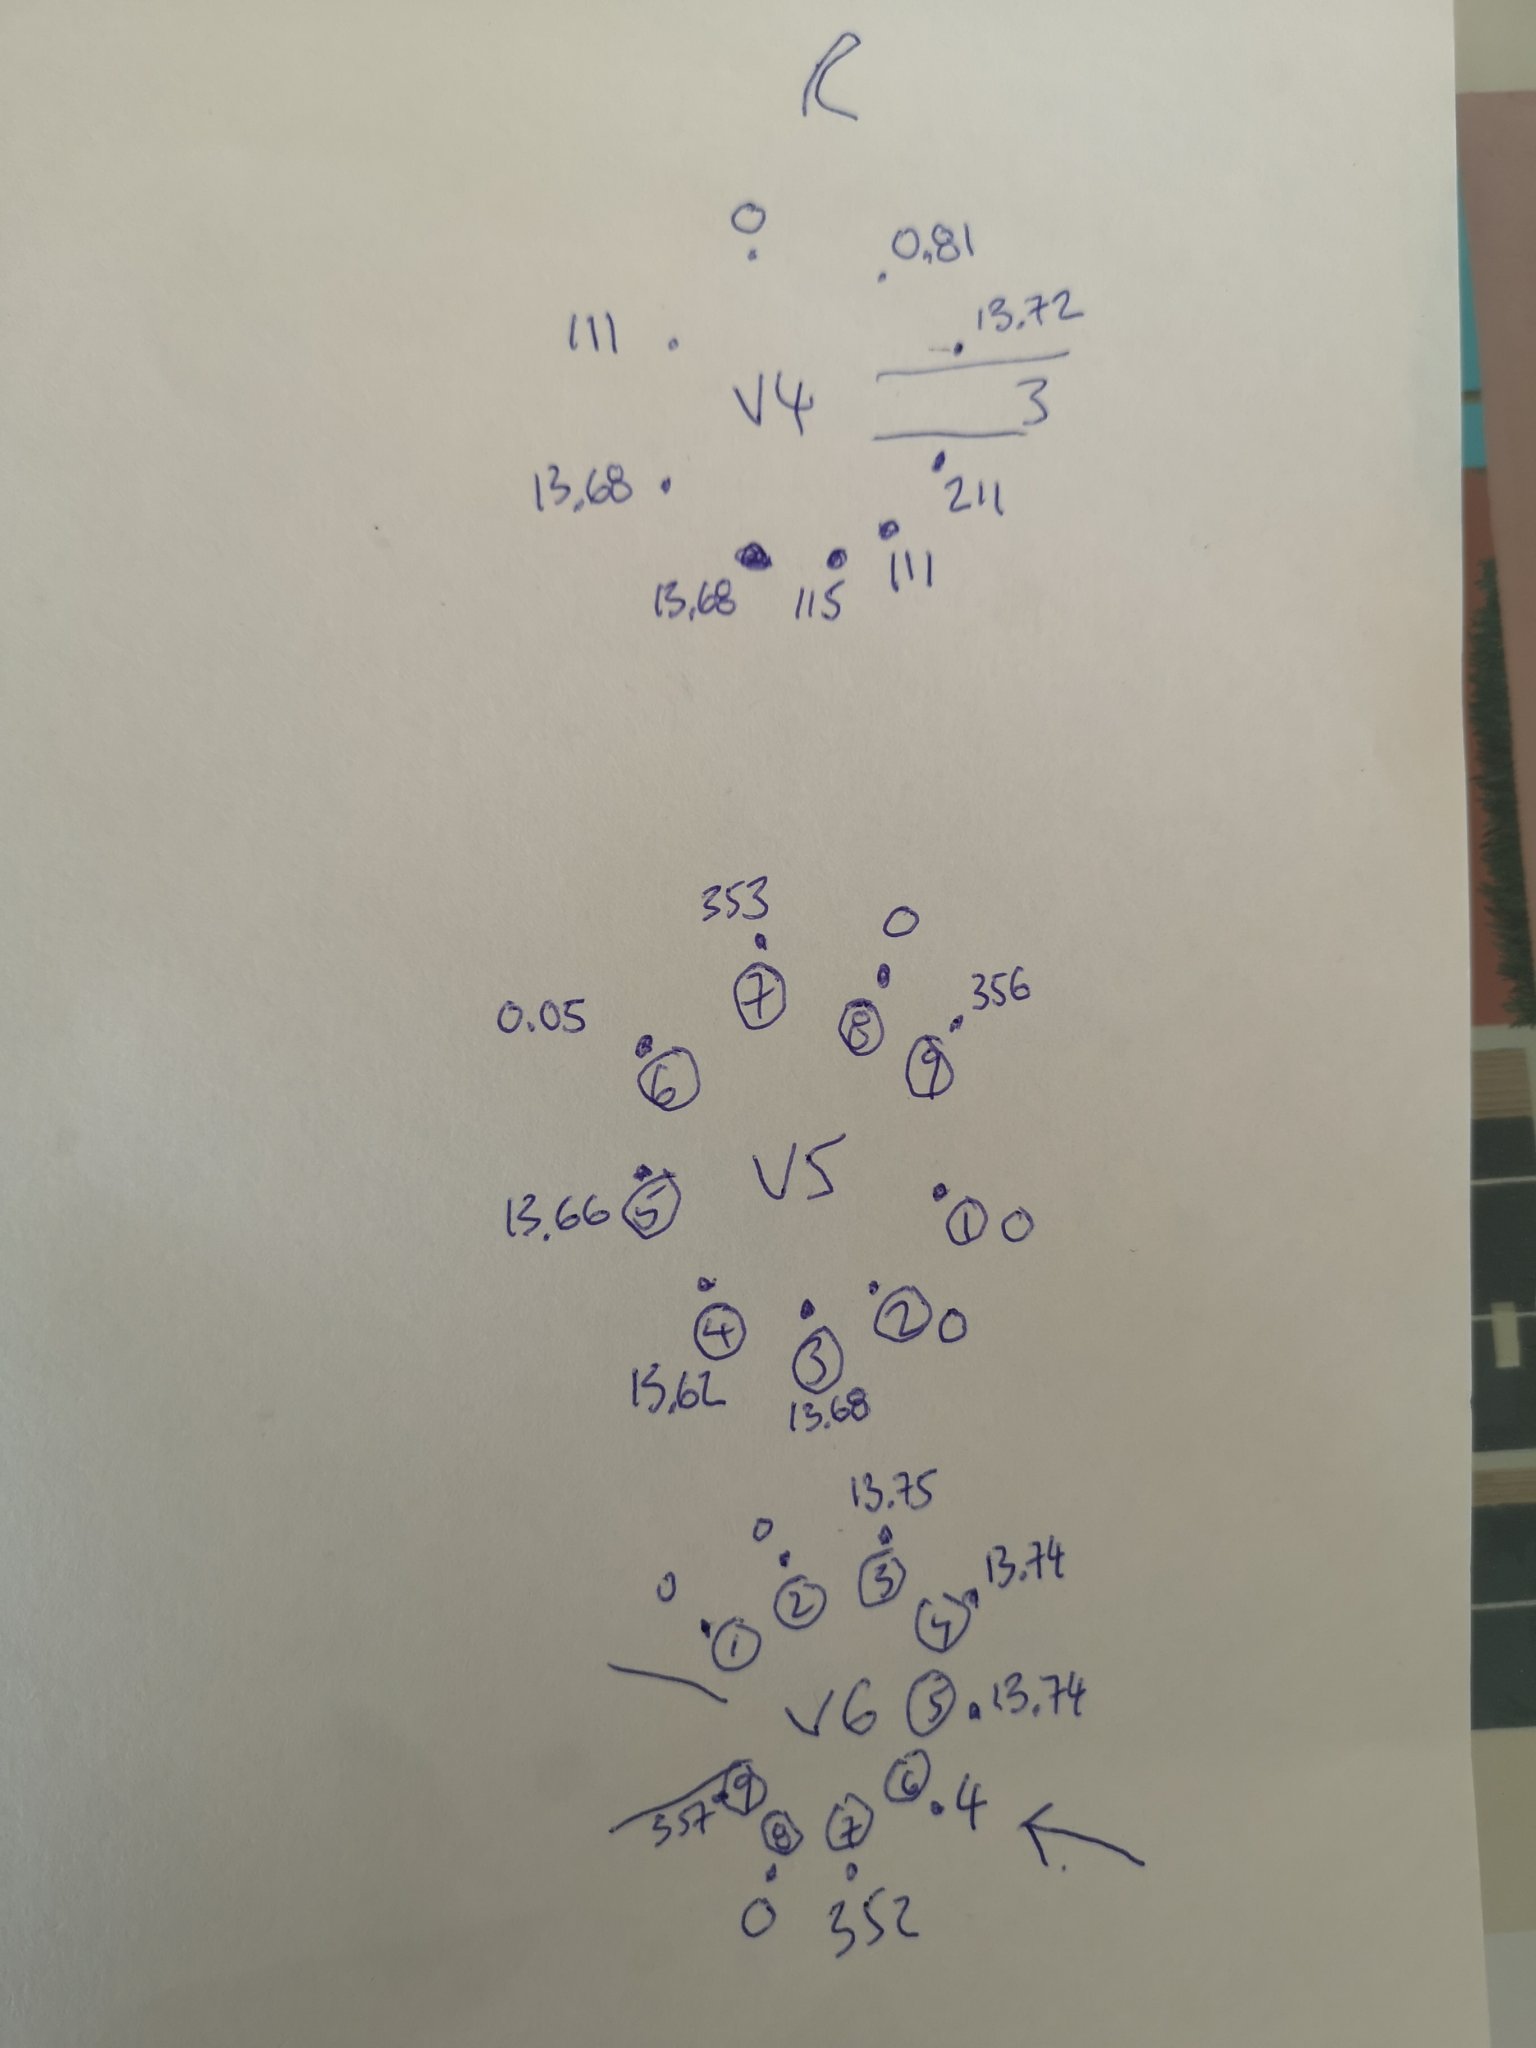 R
0
0.81
13.72
111
V4
3
13.68
211
111
13.68
115
353
0
7
356
0.05
8
9
6
V5
13.66
5
1
0
4
2
0
3
13.62
13.68
13.75
0
3
13.74
0
2
4
1
V6
5
13.74
9
6
4
357
8
7
0
352